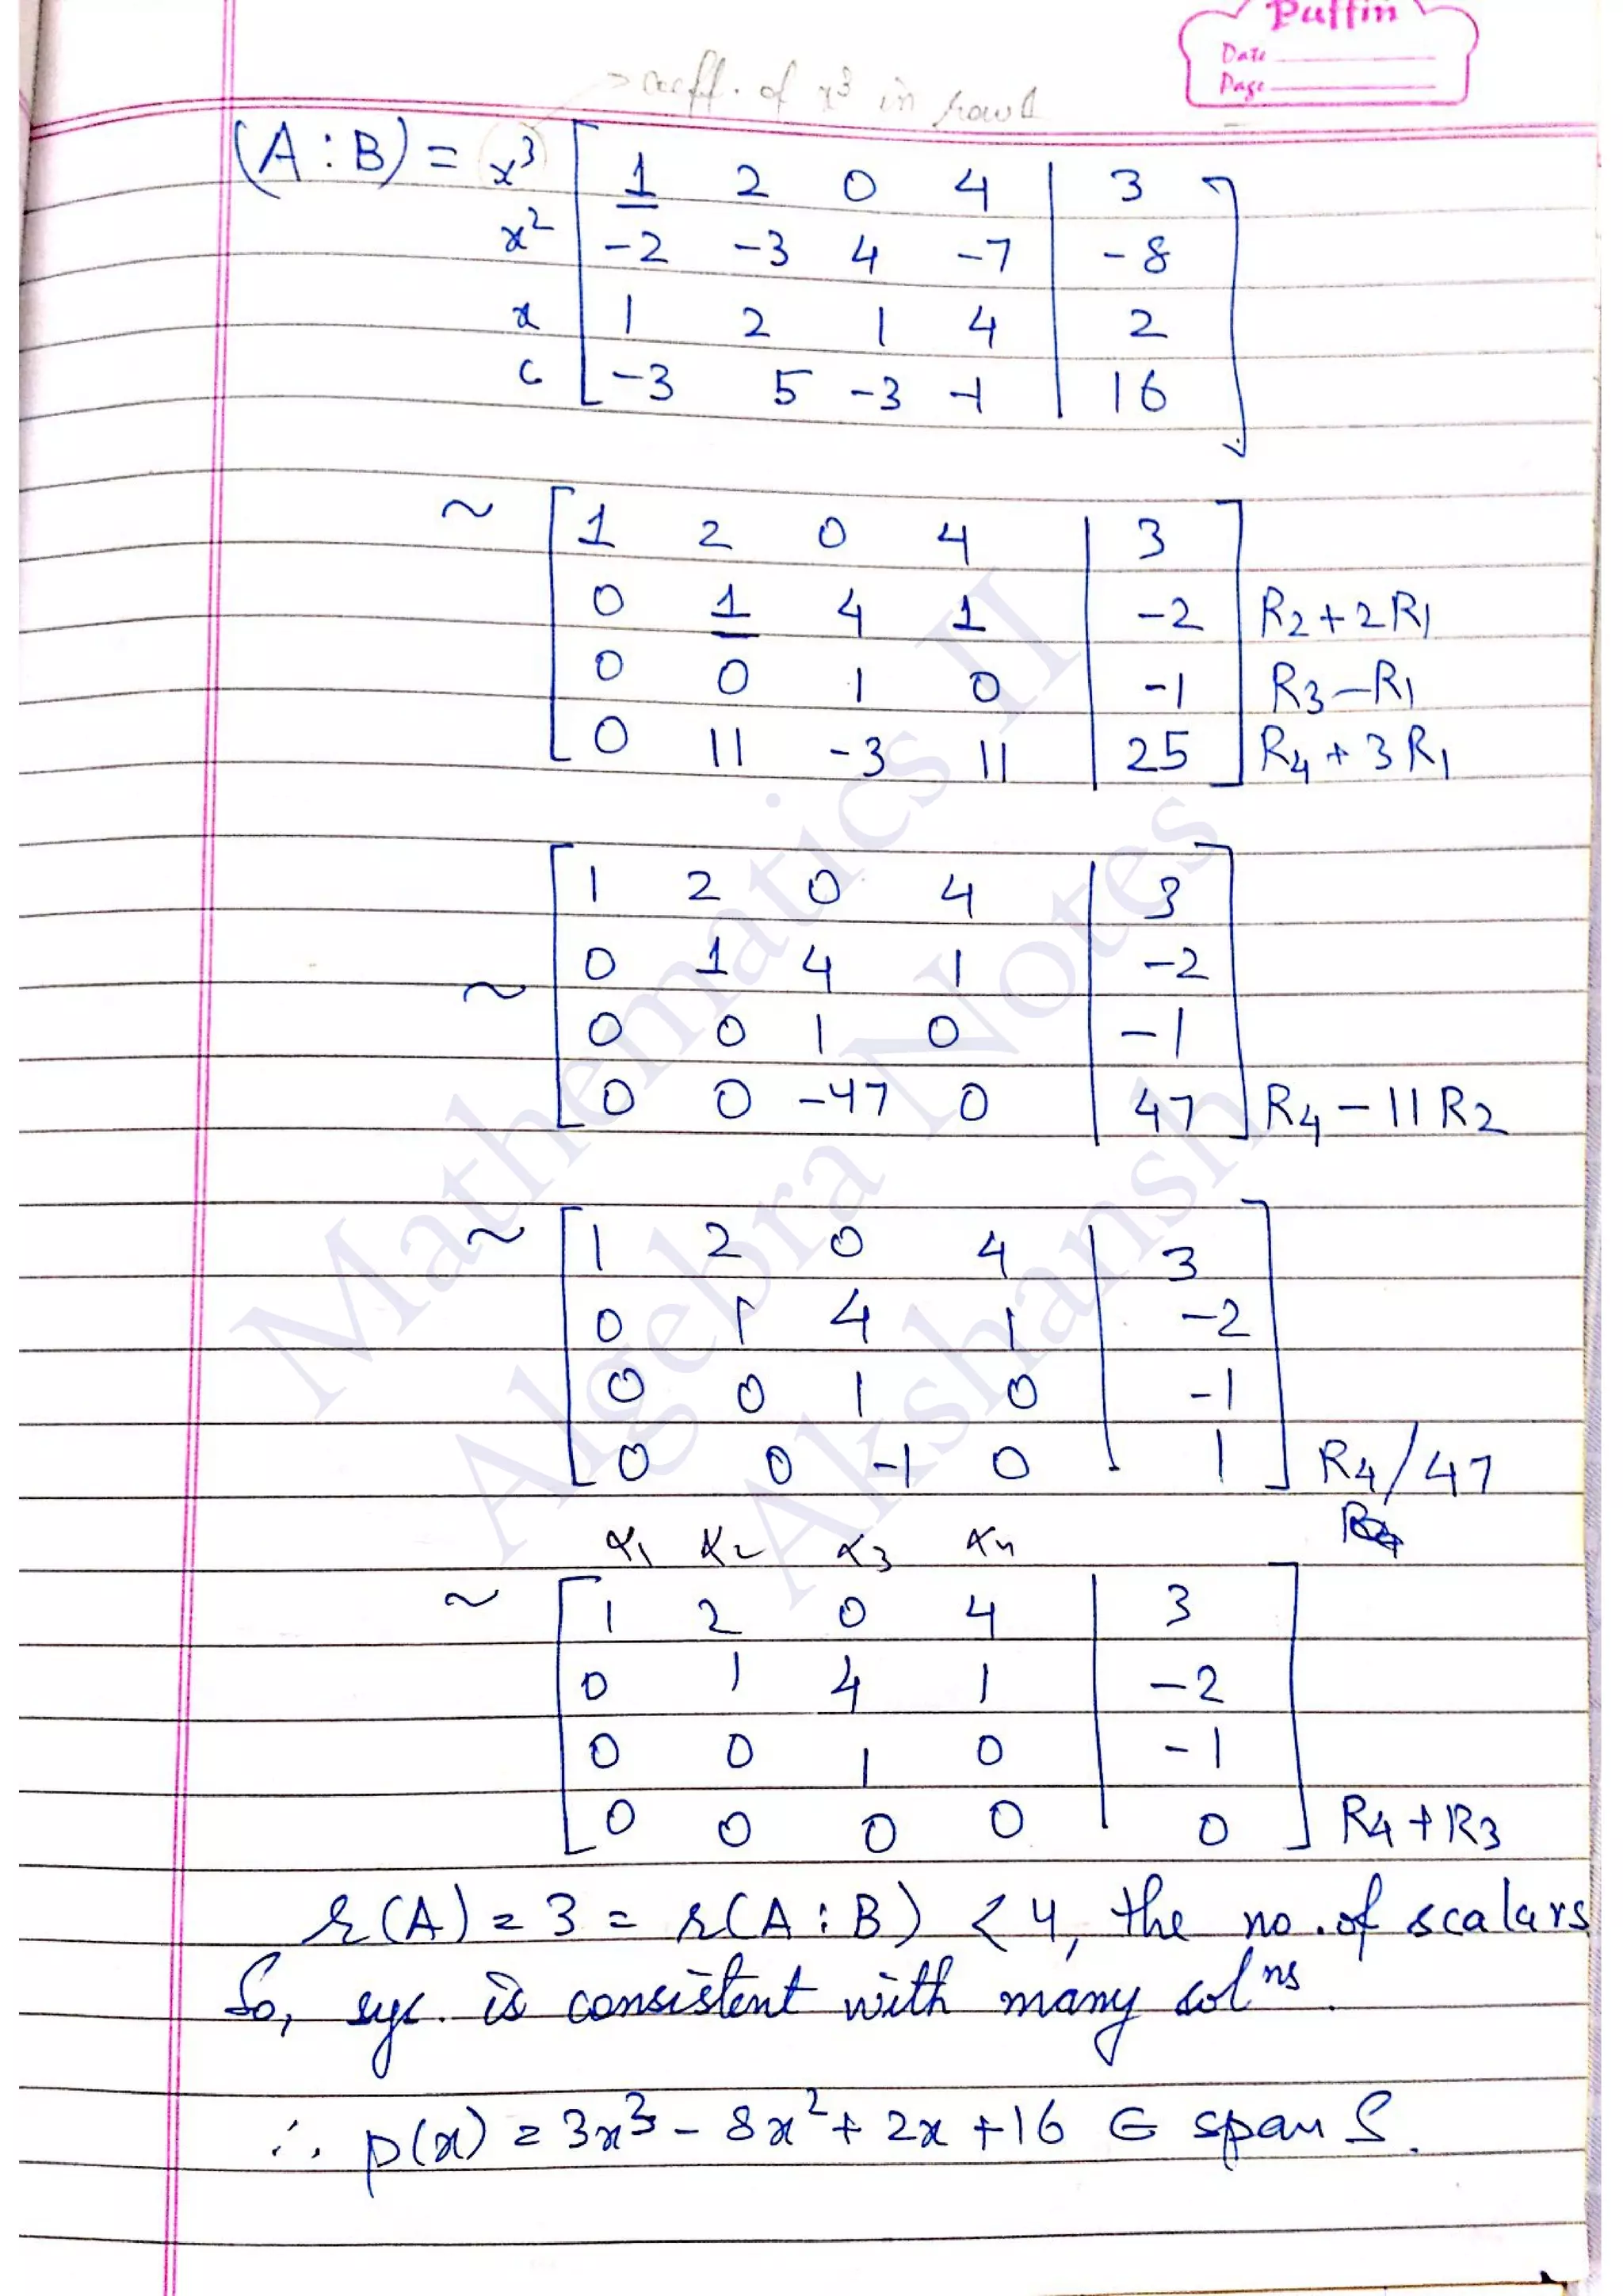 Puffin
Date
Page
→ coeff. of x³ in row 1
(A : B) = x³ [ 1 2 0 4 | 3 ]
x² -2 -3 4 -7 | -8
x 1 2 1 4 | 2
c -3 5 -3 -1 | 16
~ [ 1 2 0 4 | 3 ]
0 1 4 1 | -2 R2+2R1
0 0 1 0 | -1 R3-R1
0 11 -3 11 | 25 R4+3R1
[ 1 2 0 4 | 3 ]
0 1 4 1 | -2
~ 0 0 1 0 | -1
0 0 -47 0 | 47 R4-11R2
~ [ 1 2 0 4 | 3 ]
0 1 4 1 | -2
0 0 1 0 | -1
0 0 -1 0 | 1 R4/47
α1 α2 α3 α4
~ [ 1 2 0 4 | 3 ]
0 1 4 1 | -2
0 0 1 0 | -1
0 0 0 0 | 0 R4+R3
r(A) = 3 = r(A : B) < 4, the no. of scalars
So, sys. is consistent with many solⁿˢ.
∴ p(x) = 3x³ - 8x² + 2x + 16 ∈ span S.
Mathematics II
Algebra Notes
Akshansh